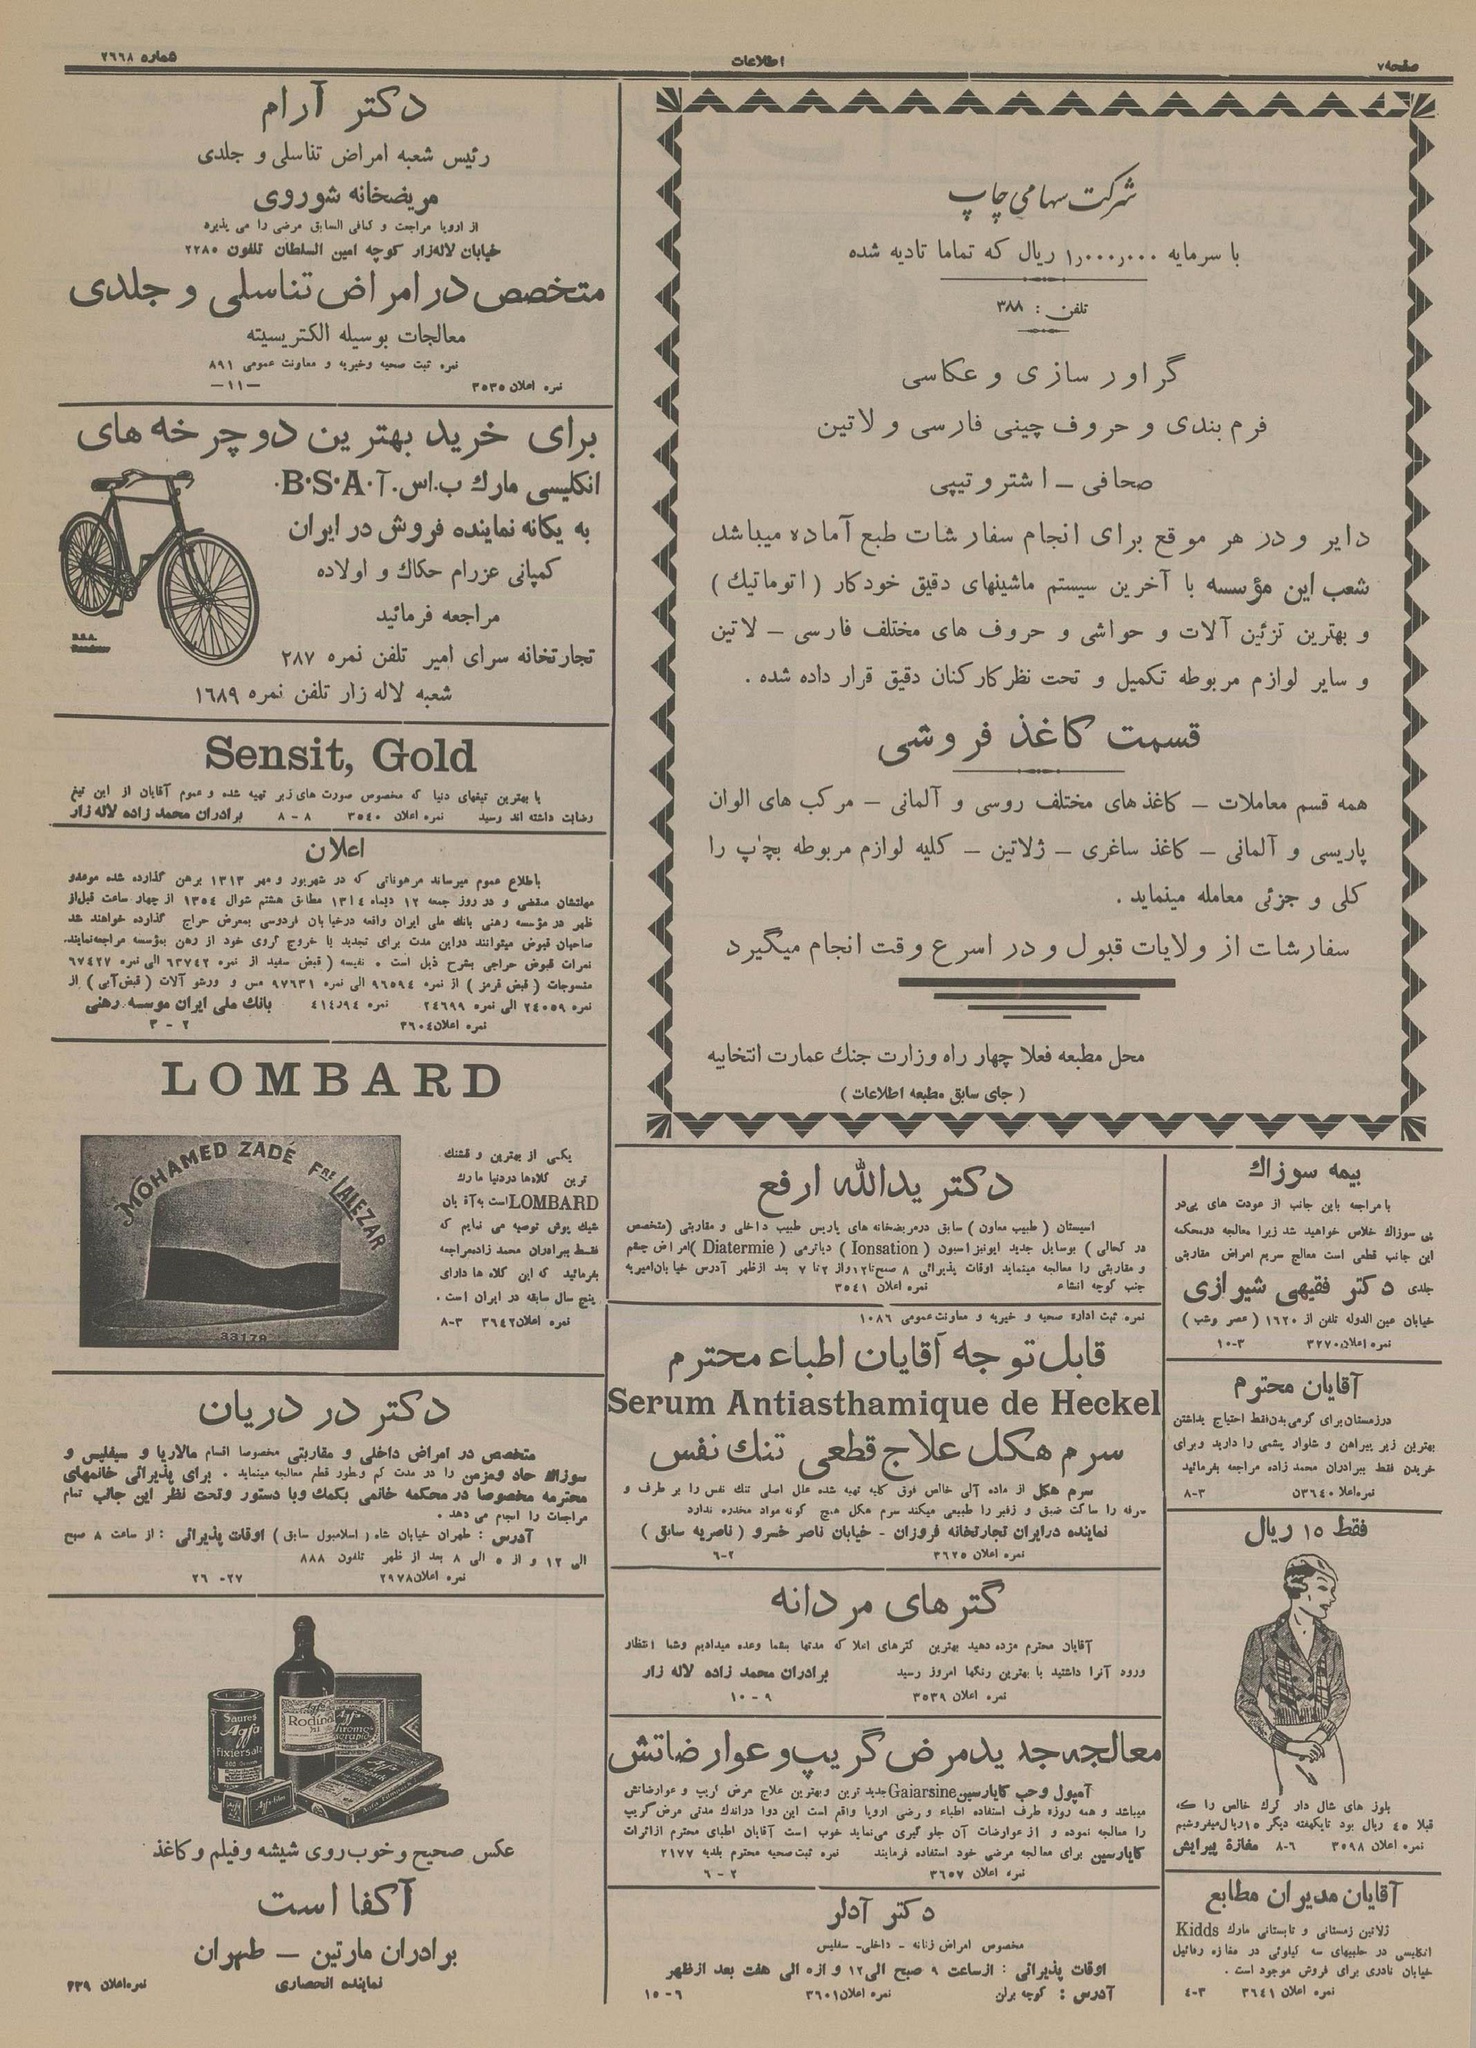 صفحه ۷
اطلاعات
شماره ۲٦٦۸
شرکت سهامی چاپ
با سرمایه ۱٫۰۰۰٫۰۰۰ ریال که تماما تادیه شده
تلفن : ۳۸۸
گراور سازی و عکاسی
فرم بندی و حروف چینی فارسی و لاتین
صحافی – اشتروتیپی
دایر و در هر موقع برای انجام سفارشات طبع آماده میباشد
شعب این مؤسسه با آخرین سیستم ماشینهای دقیق خودکار ( اتوماتیك )
و بهترین تزئین آلات و حواشی و حروف های مختلف فارسی – لاتین
و سایر لوازم مربوطه تکمیل و تحت نظر کارکنان دقیق قرار داده شده .
قسمت کاغذ فروشی
همه قسم معاملات – کاغذ های مختلف روسی و آلمانی – مرکب های الوان
پاریسی و آلمانی – کاغذ ساغری – ژلاتین – کلیه لوازم مربوطه بچاپ را
کلی و جزئی معامله مینماید .
سفارشات از ولایات قبول و در اسرع وقت انجام میگیرد
محل مطبعه فعلا چهار راه وزارت جنك عمارت انتخابیه
( جای سابق مطبعه اطلاعات )
بیمه سوزاك
با مراجعه باین جانب از عودت های پی در
پی سوزاك خلاص خواهید شد زیرا معالجه در محکمه
این جانب قطعی است معالج سریع امراض مقاربتی
جلدی دکتر فقیهی شیرازی
خیابان عین الدوله تلفن از ۱٦۲۰ ( عصر و شب )
نمره اعلان ۳۲۷۰ ۳–۱۰
آقایان محترم
در زمستان برای گرمی بدن فقط احتیاج بداشتن
بهترین زیر پیراهن و شلوار پشمی را دارید و برای
خریدن فقط ببرادران محمد زاده مراجعه بفرمائید
۳–۸
فقط ۱۵ ریال
بلوز های شال دار کرك خالص را که
قبلا ٤۵ ریال بود تا یکهفته دیگر ۱۵ ریال میفروشیم
نمره اعلان ۳۵۹۸ ٦–۸ مغازة پیرایش
آقایان مدیران مطابع
ژلاتین زمستانی و تابستانی مارك Kidds
انگلیسی در حلبیهای سه کیلوئی در مغازه رفائیل
خیابان نادری برای فروش موجود است .
نمره اعلان ۳٦٤۱ ۳–٤
دکتر یدالله ارفع
اسیستان ( طبیب معاون ) سابق در مریضخانه های پاریس طبیب داخلی و مقاربتی (متخصص
در کحالی ) بوسایل جدید ایونیزاسیون ( Ionsation ) دیاترمی ( Diatermie ) امراض چشم
و مقاربتی را معالجه مینماید اوقات پذیرائی ۸ صبح تا ۱۲ و از ۲ تا ۷ بعد از ظهر آدرس خیابان امیریه
جنب کوچه انشاء نمره اعلان ۳۵٤۱
نمره ثبت اداره صحیه و خیریه و معاونت عمومی ۱۰۸٦
قابل توجه آقایان اطباء محترم
Serum Antiasthamique de Heckel
سرم هکل علاج قطعی تنك نفس
سرم هکل از ماده آلی خالص فوق کلیه تهیه شده علل اصلی تنك نفس را بر طرف و
سرفه را ساکت ضیق و زفیر را طبیعی میکند سرم هکل هیچ گونه مواد مخدره ندارد
نماینده در ایران تجارتخانه فروزان – خیابان ناصر خسرو ( ناصریه سابق )
نمره اعلان ۳٦۲۵ ۲–٦
گترهای مردانه
آقایان محترم مزده دهید بهترین گترهای اعلا که مدتها بشما وعده میدادیم و شما انتظار
ورود آنرا داشتید با بهترین رنگها امروز رسید برادران محمد زاده لاله زار
نمره اعلان ۳۵۳۹ ۹ – ۱۰
معالجه جدید مرض گریپ و عوارضاتش
آمپول و حب گایارسین Gaiarsine جدید ترین و بهترین علاج مرض گریپ و عوارضاتش
میباشد و همه روزه طرف استفاده اطباء و رضی اروپا واقع است این دوا در اندك مدتی مرض گریپ
را معالجه نموده و از عوارضات آن جلو گیری می نماید خوب است آقایان اطبای محترم از اثرات
گایارسین برای معالجه مرضی خود استفاده فرمایند نمره ثبت صحیه محترم بلدیه ۲۱۷۷
نمره اعلان ۳٦۵۷ ۲ – ٦
دکتر آدلر
مخصوص امراض زنانه – داخلی – سفلیس
اوقات پذیرائی : از ساعت ۹ صبح الی ۱۲ و از ۵ الی هفت بعد از ظهر
آدرس : کوچه برلن نمره اعلان ۳٦۰۱ ٦–۱۵
دکتر آرام
رئیس شعبه امراض تناسلی و جلدی
مریضخانه شوروی
از اروپا مراجعت و کافی السابق مرضی را می پذیرد
خیابان لاله زار کوچه امین السلطان تلفون ۲۲۸۵
متخصص در امراض تناسلی و جلدی
معالجات بوسیله الکتریسیته
نمره ثبت صحیه و خیریه و معاونت عمومی ۸۹۱
نمره اعلان ۳۵۳۵ –۱۱–
برای خرید بهترین دوچرخه های
انکلیسی مارك ب.اس.آ.B.S.A
به یکانه نماینده فروش در ایران
کمپانی عزرام حکاك و اولاده
مراجعه فرمائید
B.S.A.
تجارتخانه سرای امیر تلفن نمره ۲۸۷
شعبه لاله زار تلفن نمره ۱٦۸۹
Sensit, Gold
با بهترین تیغهای دنیا که مخصوص صورت های زبر تهیه شده و عموم آقایان از این تیغ
رضایت داشته اند رسید نمره اعلان ۳۵٤۰ ۸ – ۸ برادران محمد زاده لاله زار
اعلان
باطلاع عموم میرساند مرهوناتی که در شهریور و مهر ۱۳۱۳ برهن گذارده شده موعد و
مهلتشان منقضی و در روز جمعه ۱۲ دیماه ۱۳۱٤ مطابق هشتم شوال ۱۳۵٤ از چهار ساعت قبل از
ظهر در مؤسسه رهنی بانك ملی ایران واقعه در خیابان فردوسی بمعرض حراج گذارده خواهند شد
صاحبان قبوض میتوانند در این مدت برای تجدید یا خروج گروی خود از رهن بمؤسسه مراجعه نمایند.
نمرات قبوض حراجی بشرح ذیل است . نفیسه ( قبض سفید از نمره ٦۳۷٤۲ الی نمره ٦۷٤۲۷
منسوجات ( قبض قرمز ) از نمره ۹٦۵۹٤ الی نمره ۹۷٦۳۱ مس و ورشو آلات ( قبض آبی ) از
نمره ۲٤۰۵۹ الی نمره ۲٤٦۹۹ نمره ٤۱٤٫۹٤ بانك ملی ایران موسسه رهنی
نمره اعلان ۳٦۰٤ ۲ – ۳
LOMBARD
MOHAMED ZADÉ Fre LALEZAR
33179
یکی از بهترین و قشنك
ترین کلاه ها در دنیا مارك
LOMBARD است به آقایان
شیك پوش توصیه می نمایم که
فقط ببرادران محمد زاده مراجعه
بفرمائید که این کلاه ها دارای
پنج سال سابقه در ایران است .
نمره اعلان ۳٦٤۲ ۳–۸
دکتر در دریان
متخصص در امراض داخلی و مقاربتی مخصوصا اقسام مالاریا و سیفلیس و
سوزاك حاد و مزمن را در مدت کم و بطور قطع معالجه مینماید . برای پذیرائی خانمهای
محترمه مخصوصا در محکمه خانمی بکمك و با دستور و تحت نظر این جانب تمام
مراجعات را انجام می دهد .
آدرس : طهران خیابان شاه ( اسلامبول سابق ) اوقات پذیرائی : از ساعت ۸ صبح
الی ۱۲ و از ۵ الی ۸ بعد از ظهر تلفون ۸۸۸
نمره اعلان ۲۹۷۸ ۲۷– ۲٦
Saures
Agfa
Fixiersalz
Agfa
Rodinal
Agfa
Agfa-film
عکس صحیح و خوب روی شیشه و فیلم و کاغذ
آکفا است
برادران مارتین – طهران
نماینده انحصاری
نمره اعلان ۲۳۹